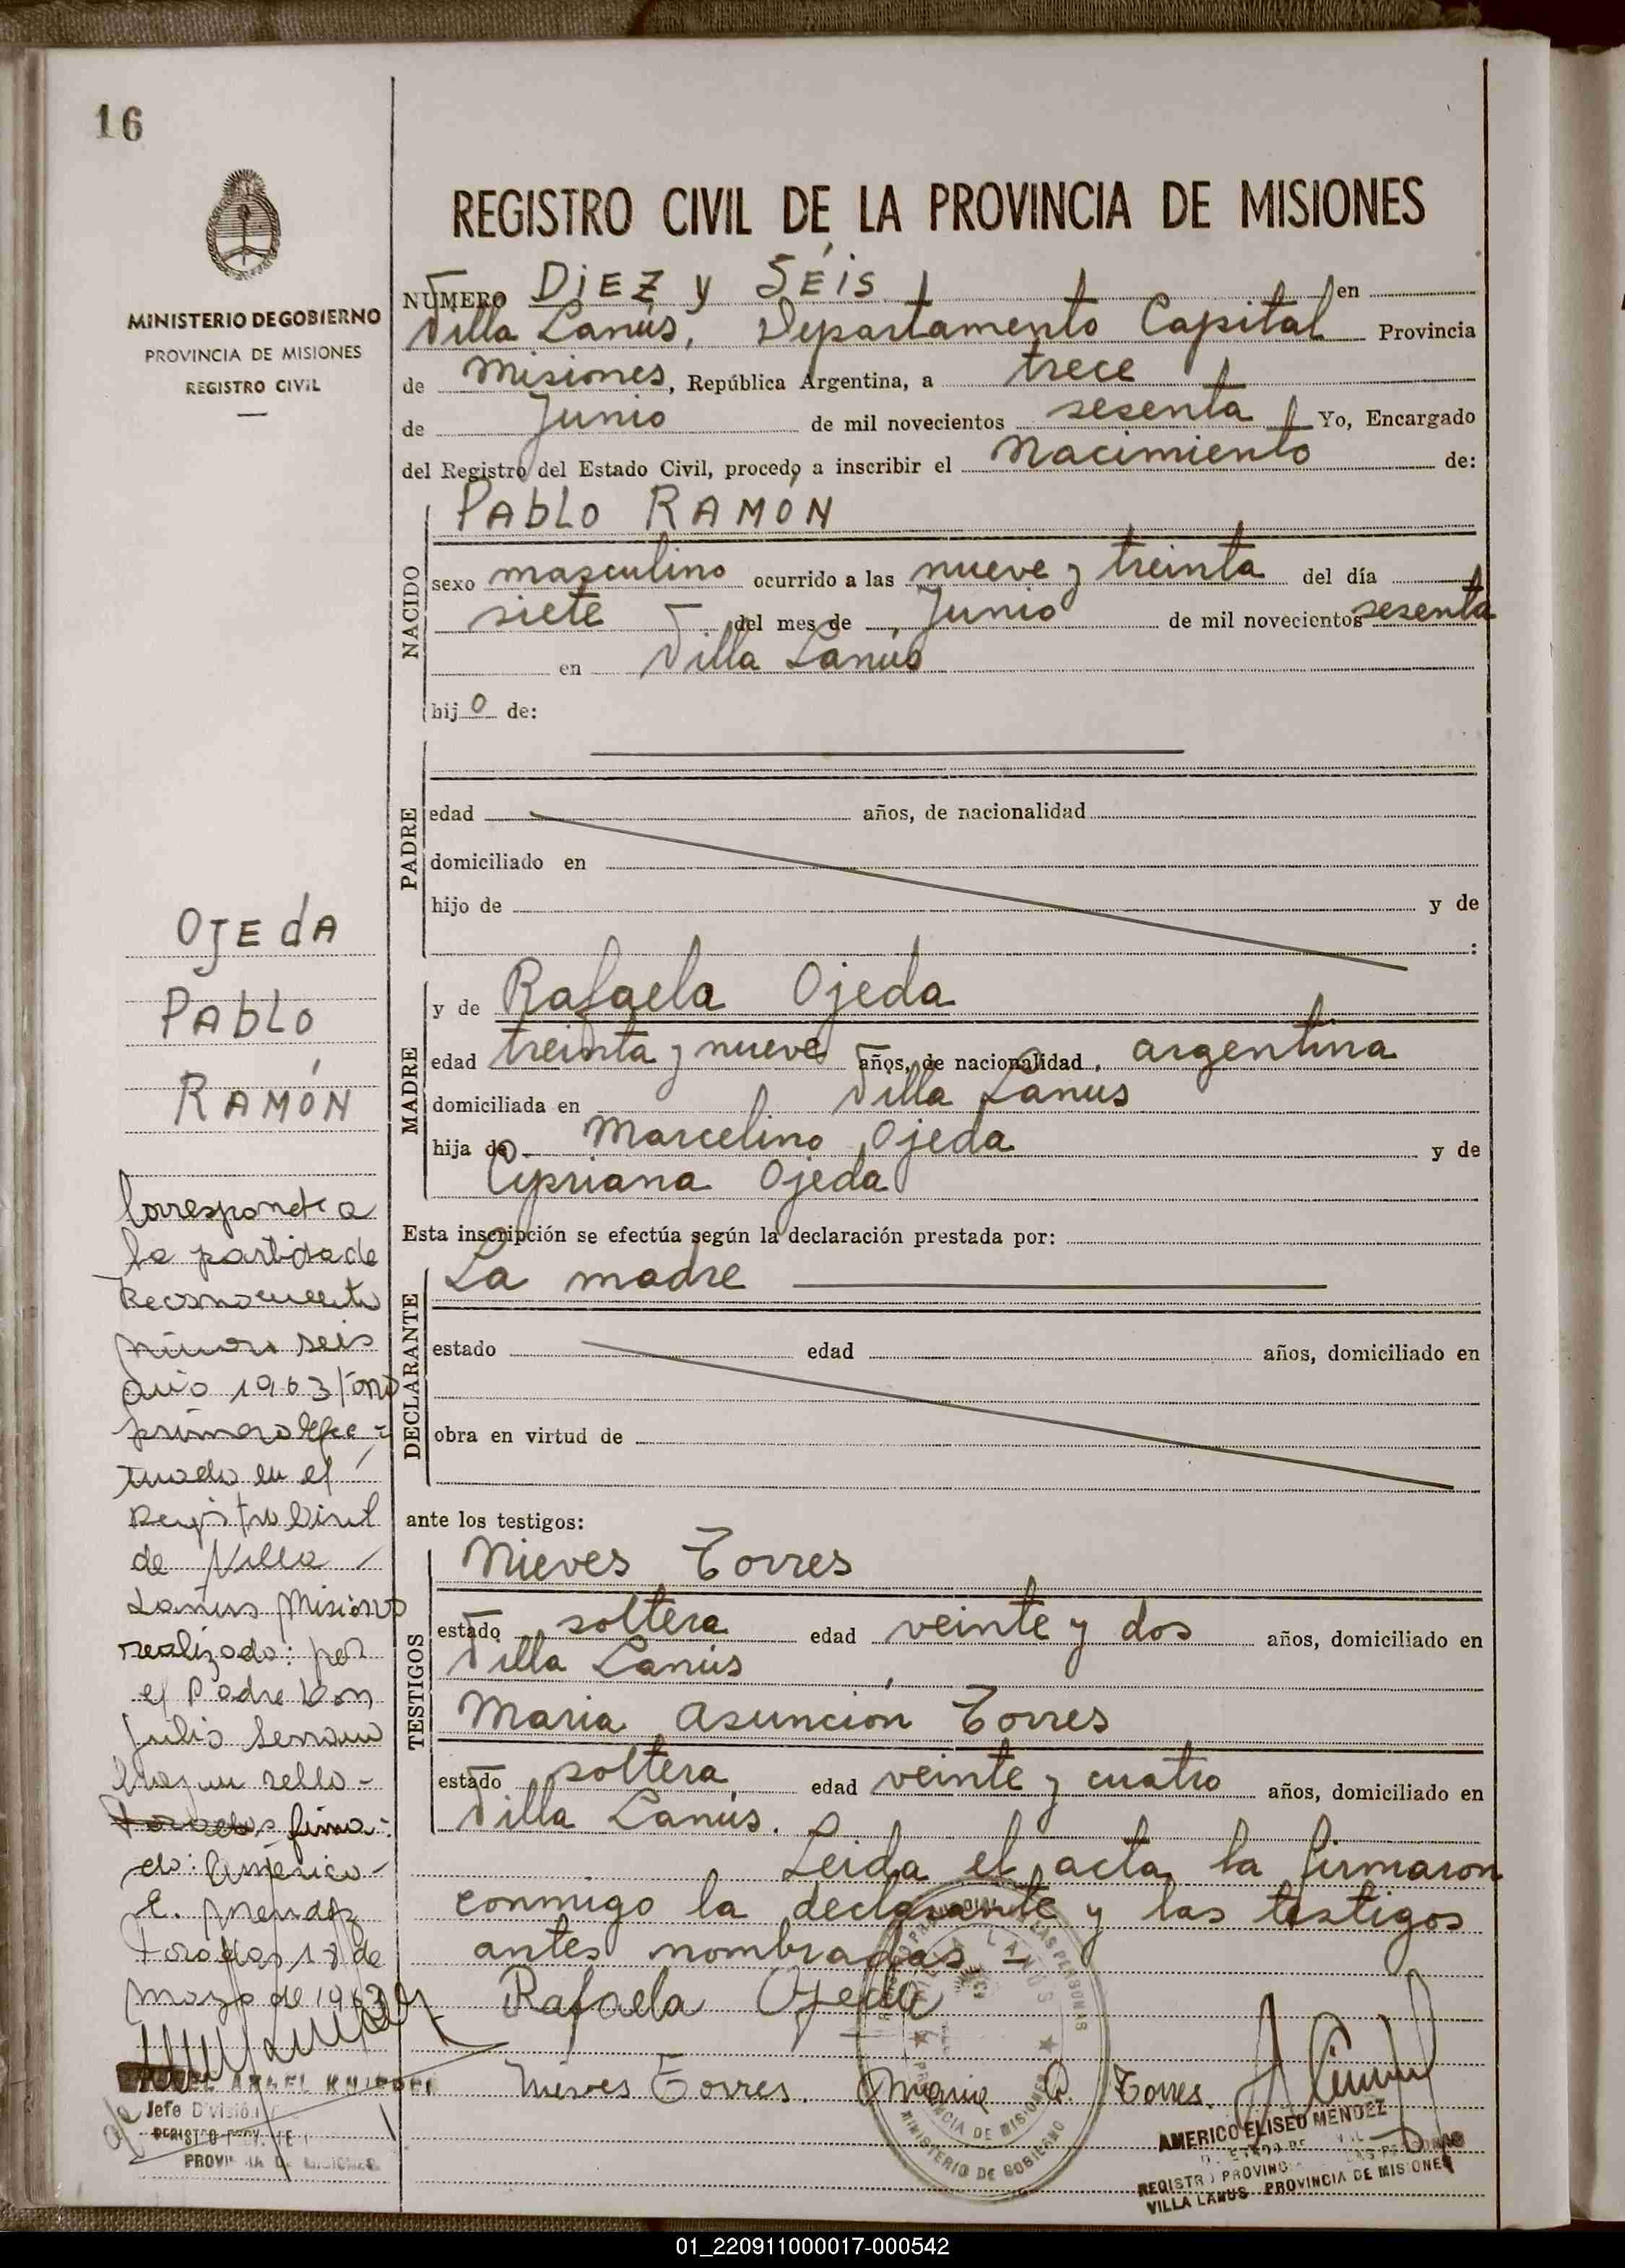 16
MINISTERIO DE GOBIERNO
PROVINCIA DE MISIONES
REGISTRO CIVIL
REGISTRO CIVIL DE LA PROVINCIA DE MISIONES
NUMERO DiEZ y SÉis en
Villa Lanús, Departamento Capital Provincia
de Misiones, República Argentina, a trece
de Junio de mil novecientos sesenta Yo, Encargado
del Registro del Estado Civil, procedo a inscribir el Nacimiento de:
NACIDO
PAbLO RAMÓN
sexo masculino ocurrido a las nueve y treinta del día
siete del mes de Junio de mil novecientos sesenta
en Villa Lanús
hijo de:
PADRE
edad años, de nacionalidad
domiciliado en
hijo de y de
:
MADRE
y de Rafaela Ojeda
edad treinta y nueve años, de nacionalidad argentina
domiciliada en Villa Lanús
hija de Marcelino Ojeda y de
Cipriana Ojeda
Esta inscripción se efectúa según la declaración prestada por:
DECLARANTE
La madre
estado edad años, domiciliado en
obra en virtud de
ante los testigos:
TESTIGOS
Nieves Torres
estado soltera edad veinte y dos años, domiciliado en
Villa Lanús
Maria Asunción Torres
estado soltera edad veinte y cuatro años, domiciliado en
Villa Lanús.
Leida el acta, la firmaron
conmigo la declarante y las testigos
antes nombradas
Rafaela Ojeda
Nieves Torres. Maria A. Torres.
AMERICO ELISEO MENDEZ
REGISTRO PROVINC LAS PERSONAS
VILLA LANUS PROVINCIA DE MISIONES
VILLA LANÚS
PROVINCIA DE MISIONES
MINISTERIO DE GOBIERNO
OJEdA
PAbLO
RAMÓN
Corresponde a
la partida de
Reconocimiento
número seis
año 1963 tomo
primero efec-
tuado en el
Registro Civil
de Villa
Lanus Misiones
realizado: por
el Padre Don
Julio Serrano
Hay un sello-
Posadas firma-
do: Américo-
E. Mendez
Posadas 18 de
de 1963
Jefe División
PROVINCIA DE MISIONES
01_220911000017-000542